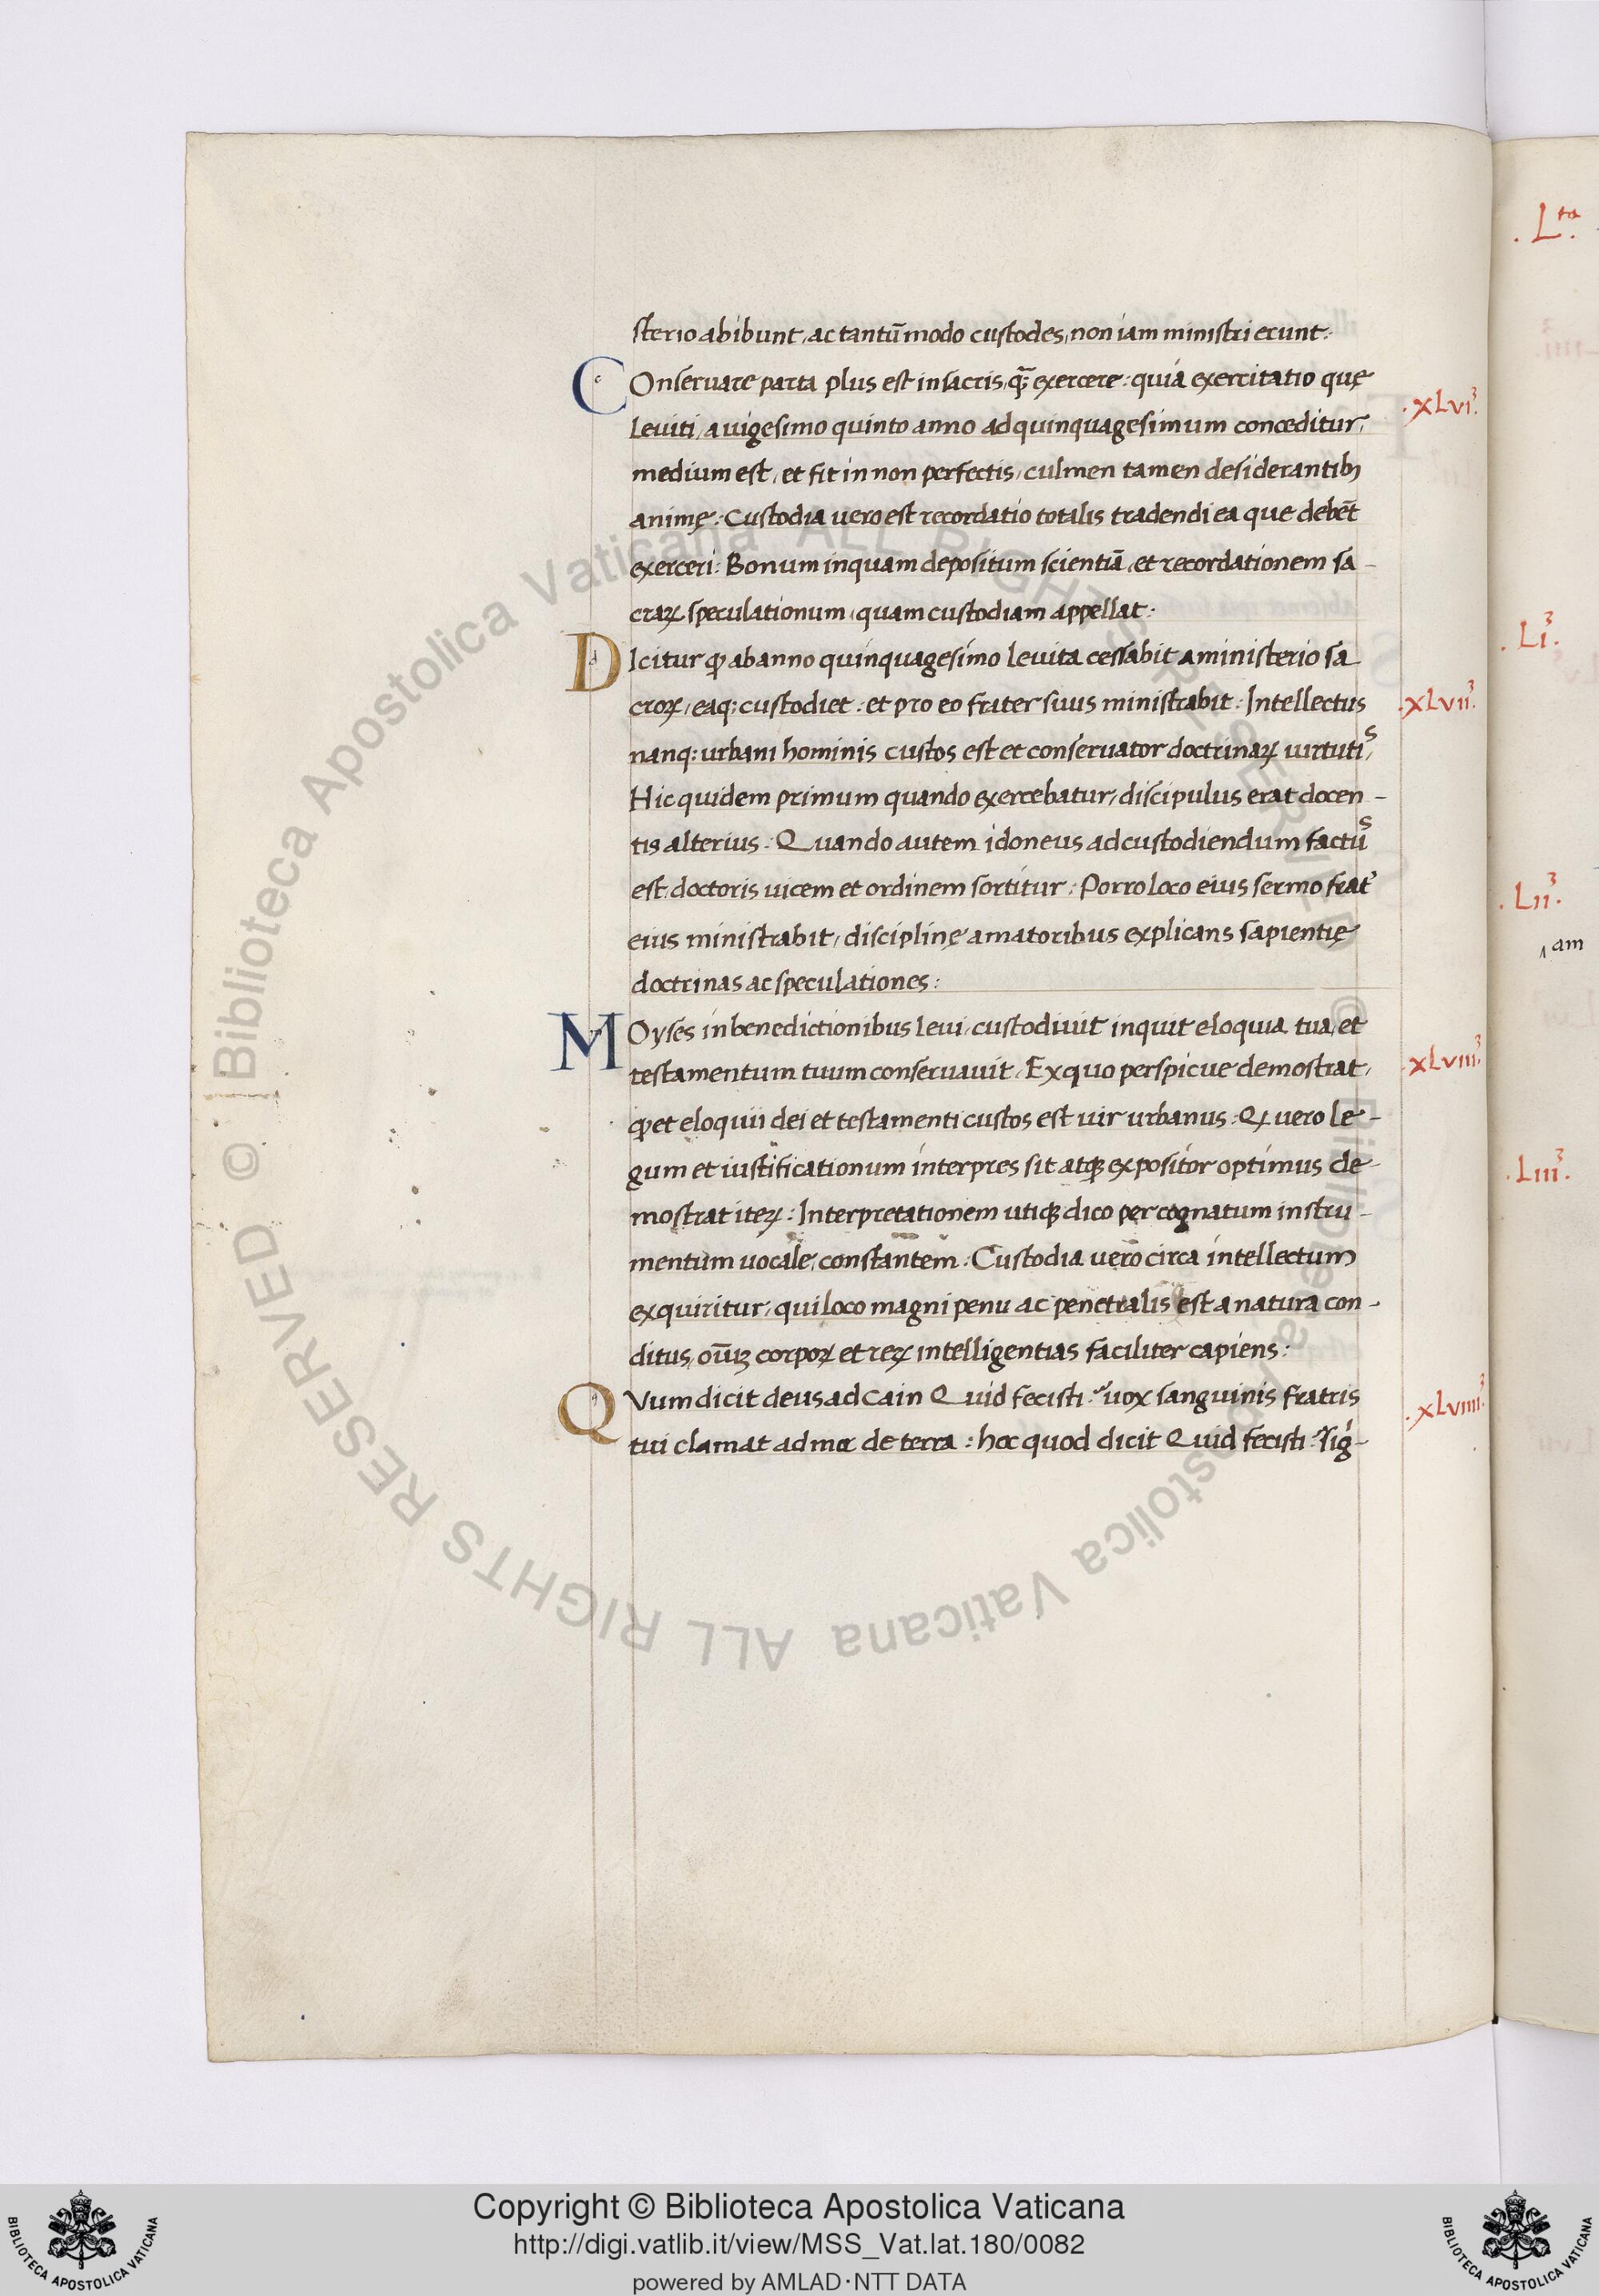 sterio abibunt, ac tantū modo custodes, non iam ministri erunt:
COnseruare parta plus est in sacris, qȝ̄ exercere: quia exercitatio quę
Leuiti, a uigesimo quinto anno ad quinquagesimum conceditur,
medium est, et fit in non perfectis, culmen tamen desiderantibꝫ
animę: Custodia uero est recordatio totalis tradendi ea que debēt
exerceri: Bonum inquam depositum scientiā, et recordationem sa-
craꝝ speculationum, quam custodiam appellat:
DIcitur ꝙ ab anno quinquagesimo leuita cessabit a ministerio sa
croꝝ, eaq; custodiet: et pro eo frater suus ministrabit: Intellectus
nanq; urbani hominis custos est et conseruator doctrinaꝝ uirtutis,
Hic quidem primum quando exercebatur, discipulus erat docen-
tis alterius. Quando autem idoneus ad custodiendum factus
est, doctoris uicem et ordinem sortitur: Porro loco eius sermo frat̉
eius ministrabit, disciplinę amatoribus explicans sapientię
doctrinas ac speculationes:
MOyses in benedictionibus leui, custodiuit inquit eloquia tua, et
testamentum tuum conseruauit. Ex quo perspicue demostrat,
ꝙ et eloquii dei et testamenti custos est uir urbanus: Ꝙ uero le-
gum et iustificationum interpres sit atqꝫ expositor optimus de-
mostrat iteꝝ: Interpretationem utiqꝫ dico per cognatum instru-
mentum uocale, constantem: Custodia uero circa intellectum
exquiritur, qui loco magni penu ac penetralis est a natura con-
ditus, oūiꝫ corpoꝝ et reꝝ intelligentias faciliter capiens:
QVum dicit deus ad Cain Quid fecisti? uox sanguinis fratris
tui clamat ad me de terra: hoc quod dicit Quid fecisti? sig-
.xLvi³.
.xLvii³.
.xLviii³.
.xLviiii³.
.Lta.
.Li³.
.Lii³.
am
.Liii³.
© Biblioteca Apostolica Vaticana ALL RIGHTS RESERVED © Biblioteca Apostolica Vaticana ALL RIGHTS RESERVED
Copyright © Biblioteca Apostolica Vaticana
http://digi.vatlib.it/view/MSS_Vat.lat.180/0082
powered by AMLAD·NTT DATA
BIBLIOTECA APOSTOLICA VATICANA
BIBLIOTECA APOSTOLICA VATICANA